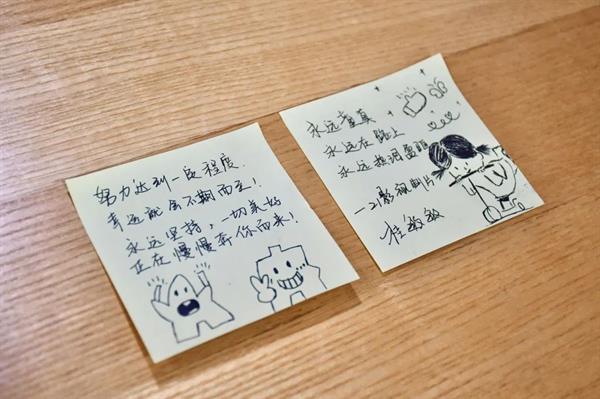 努力达到一定程度.
幸运就会不期而至!
永远坚持,一切美好
正在慢慢奔你而来!
永远童真
永远在路上
永远热泪盈眶
桂敏敏